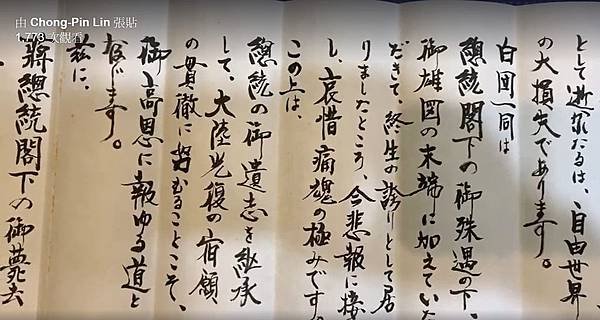 由 Chong-Pin Lin 張貼
1,773 次觀看
として逝かたるは、自由世界
の大損失であります。
白団一同は
總統閣下の御殊遇の下、
御雄図の末端に加えていた
だきて、終生の誇りとして居
りましたところ、今悲報に接
し、哀惜痛魂の極みです。
この上は、
總統の御遺志を継承
して、大陸光復の宿願
の貫徹に努むることこそ、
御高恩に報ゆる道と
存じます。
茲に、
蔣總統閣下の御薨去